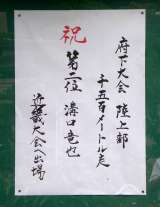 府下大会 陸上部
千五百メートル走
祝
第二位 溝口竜也
近畿大会へ出場